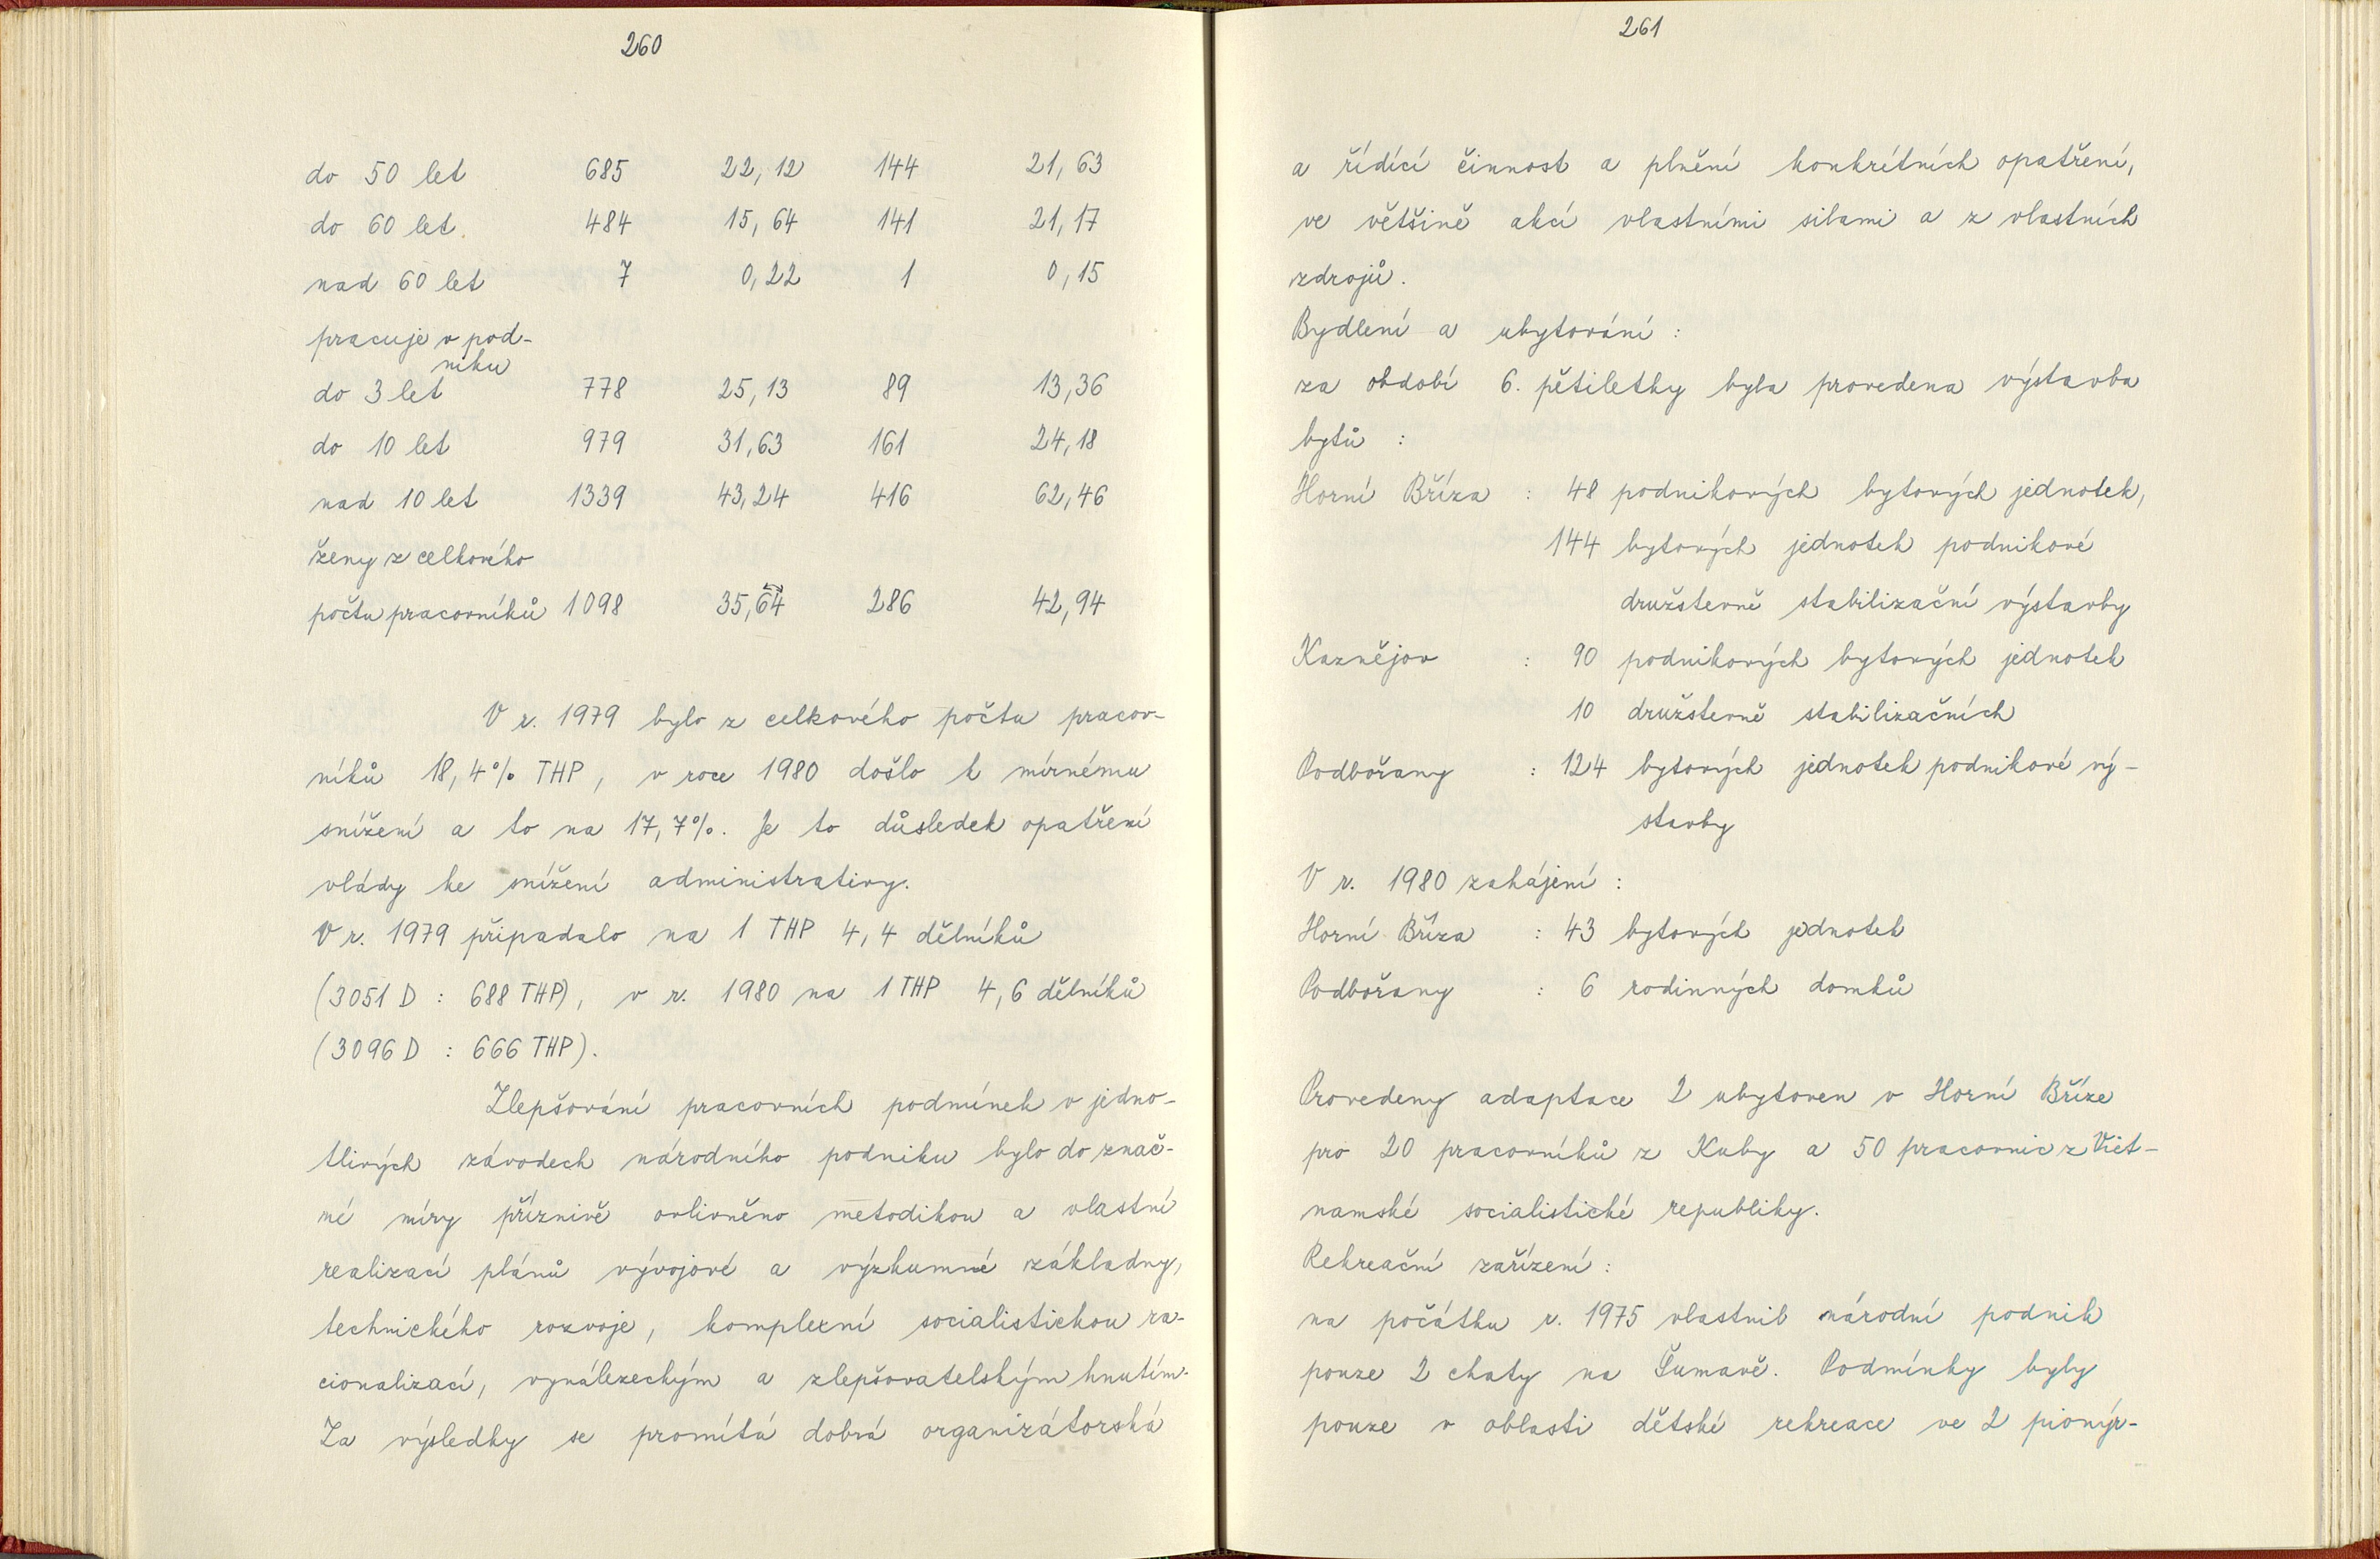 260
do 50 let 685 22,12 144 21,63
do 60 let. 484 15,64 141 21,17
nad 60 let 7 0,22 1 0,15
pracuje v pod-
niku
do 3 let 778 25,13 89 13,36
do 10 let 979 31,63 161 24,18
nad 10 let 1339 43,24 416 62,46
ženy z celkového
počtu pracovníků 1098 35,64 286 42,94
V r. 1979 bylo z celkového počtu pracov-
níků 18,4% THP, v roce 1980 došlo k mírnému
snížení a to na 17,7%. Je to důsledek opatření
vlády ke snížení administrativy.
V r. 1979 připadalo na 1 THP 4,4 dělníků
(3051 D : 688 THP), v r. 1980 na 1 THP 4,6 dělníků
(3096 D : 666 THP).
Zlepšování pracovních podmínek v jedno-
tlivých závodech národního podniku bylo do znač-
né míry příznivě ovlivněno metodikou a vlastní
realizací plánů vývojové a výzkumné základny,
technického rozvoje, komplexní socialistickou ra-
cionalizací, vynálezeckým a zlepšovatelským hnutím.
Za výsledky se promítá dobrá organizátorská
261
a řídící činnost a plnění konkrétních opatření,
ve většině akcí vlastními silami a z vlastních
zdrojů.
Bydlení a ubytování :
za období 6. pětiletky byla provedena výstavba
bytů :
Horní Bříza : 48 podnikových bytových jednotek,
144 bytových jednotek podnikové
družstevně stabilizační výstavby
Kaznějov : 90 podnikových bytových jednotek
10 družstevně stabilizačních
Podbořany : 124 bytových jednotek podnikové vý-
stavby
V r. 1980 zahájení :
Horní Bříza : 43 bytových jednotek
Podbořany : 6 rodinných domků
Provedeny adaptace 2 ubytoven v Horní Bříze
pro 20 pracovníků z Kuby a 50 pracovnic z Viet-
namské socialistické republiky.
Rekreační zařízení :
na počátku r. 1975 vlastnil národní podnik
pouze 2 chaty na Šumavě. Podmínky byly
pouze v oblasti dětské rekreace ve 2 pionýr-